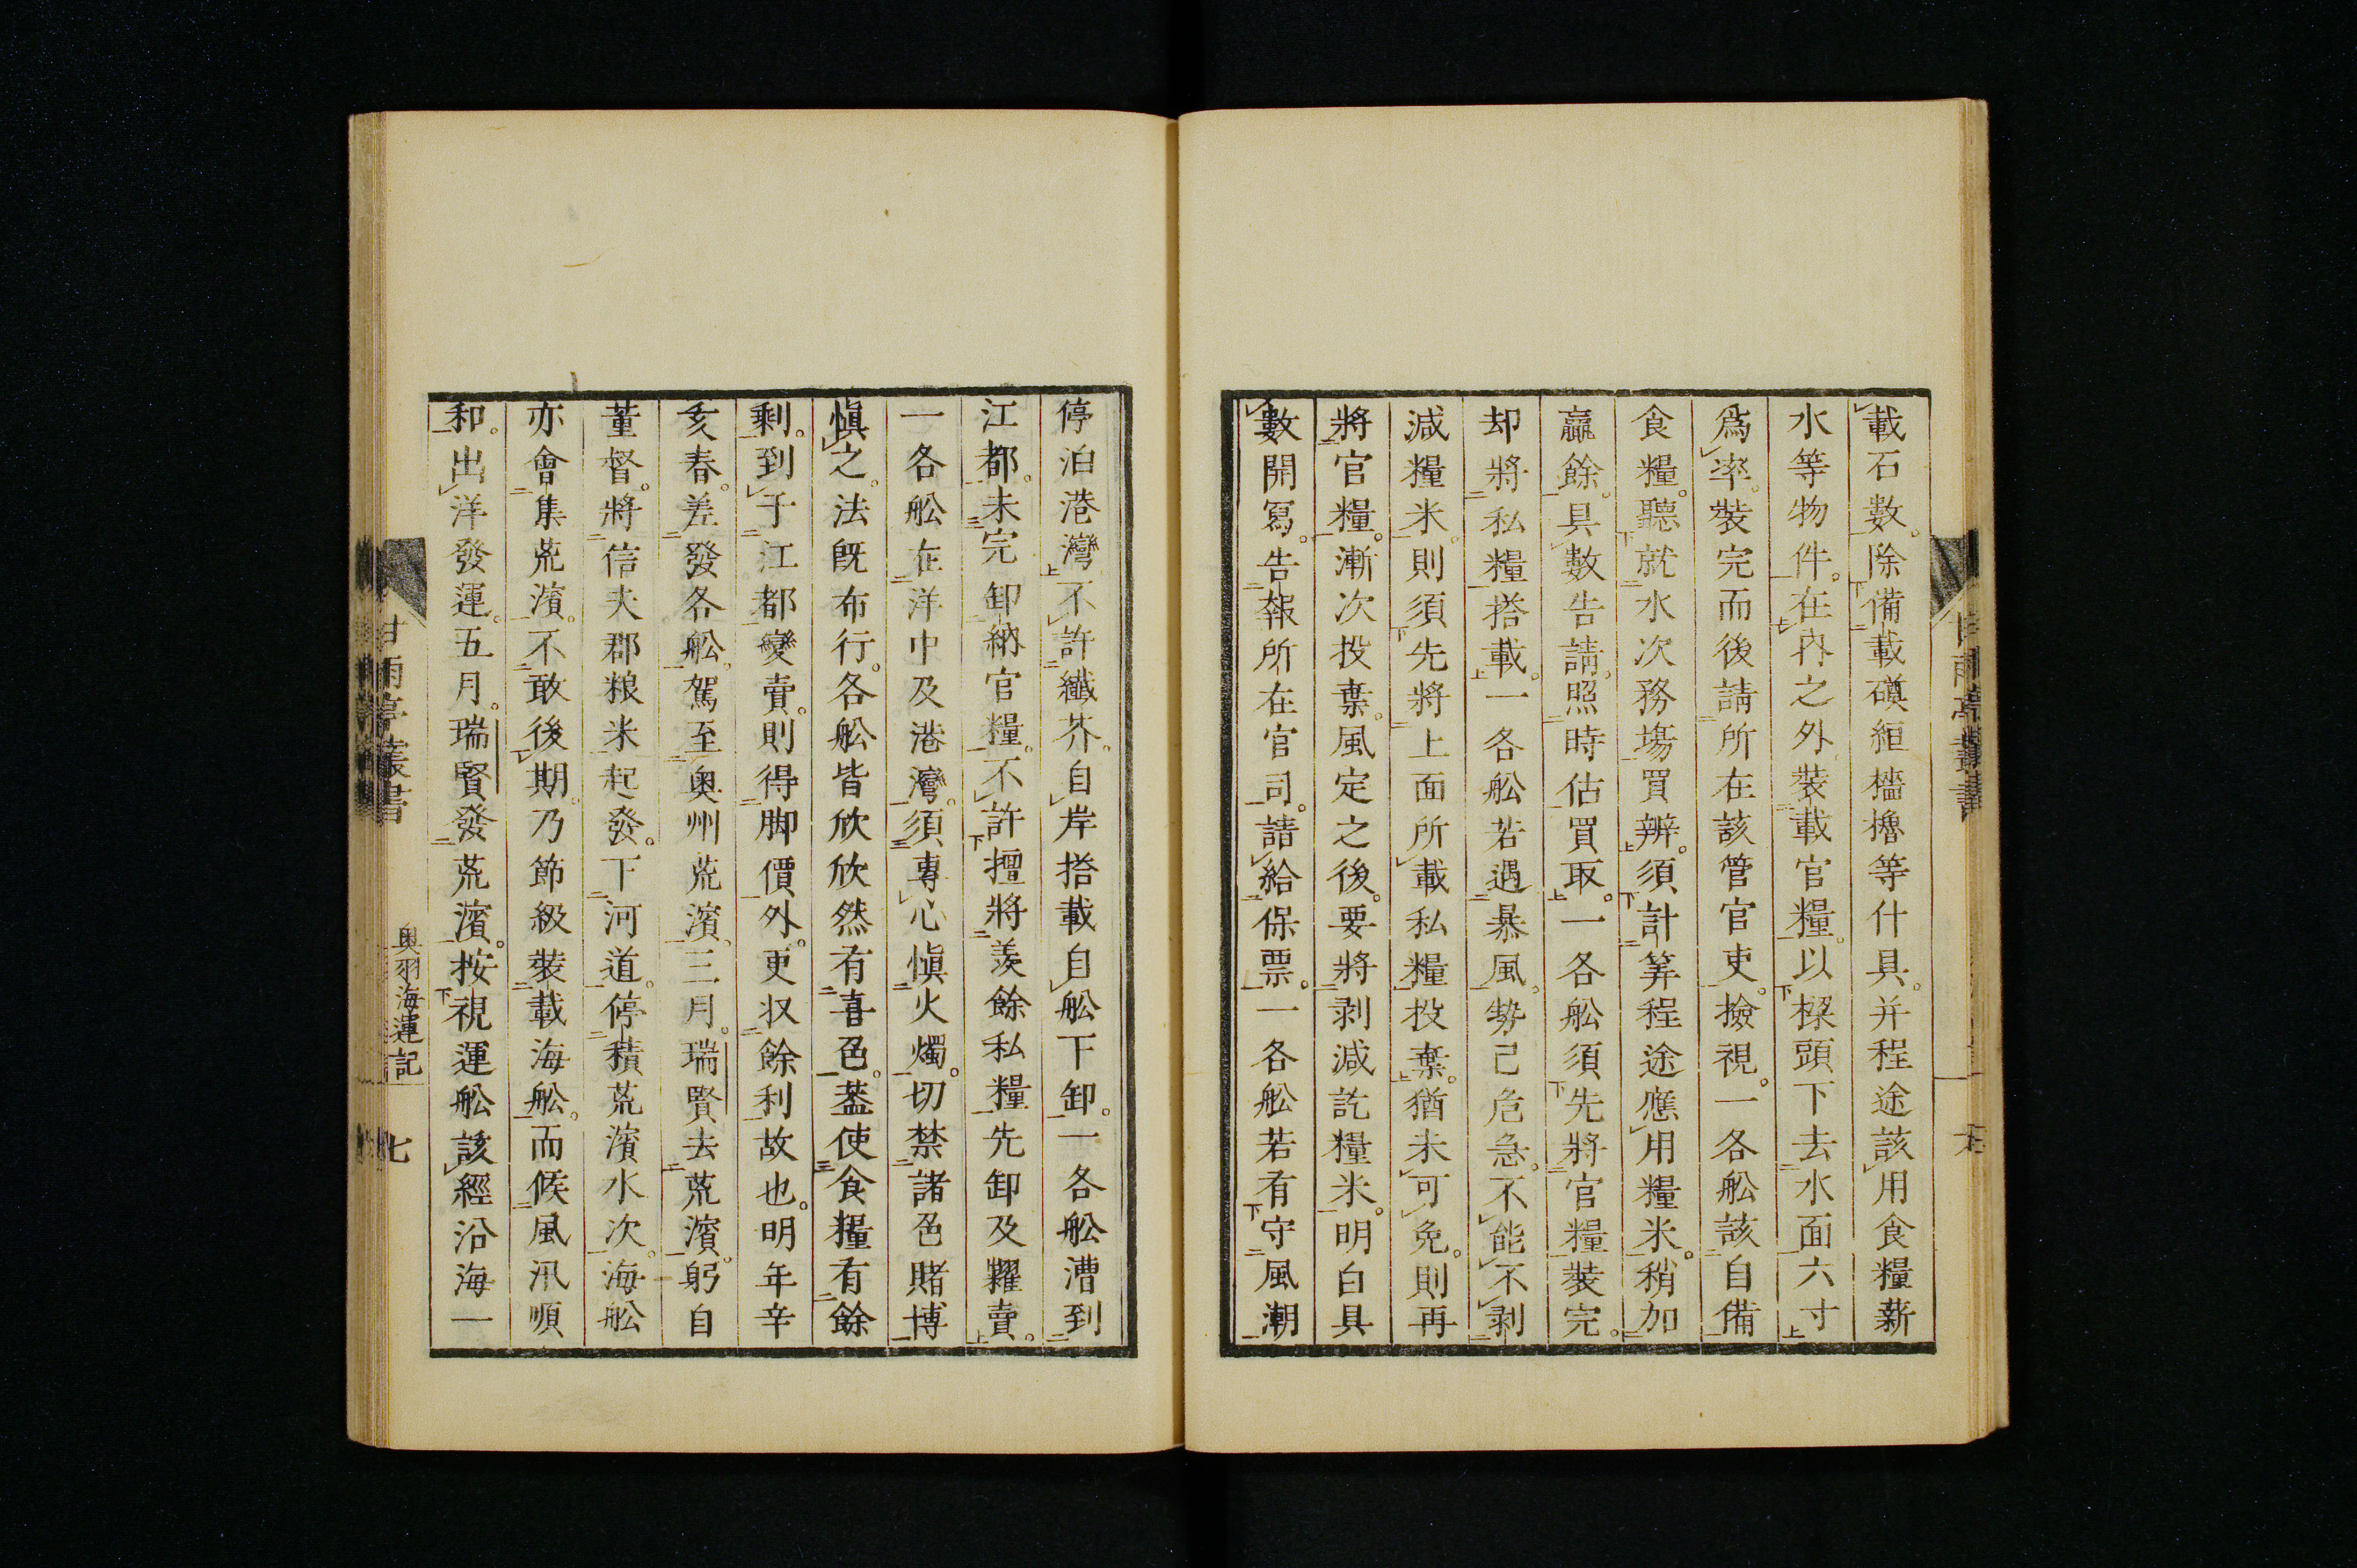 載石數。除備載磸絙檣櫓等什具。并程途該用食糧薪
水等物件。在內之外裝載官糧。以樑頭下去水面六寸
爲率。裝完而後請所在該管官吏。撿視。一各舩該自備
食糧。聽就水次務場買辨。須計筭程途應用糧米。稍加
贏餘。具數告請。照時估買取。一各舩須先將官糧裝完。
却將私糧搭載。一各舩若遇暴風。勢已危急。不能不剥
減糧米。則須先將上面所載私糧投棄。猶未可免。則再
將官糧。漸次投棄。風定之後。要將剥減訖糧米。明白具
數開寫。告報所在官司。請給保票。一各舩若有守風潮
停泊港灣不許纖芥。自岸搭載自舩下卸。一各舩漕到
江都。未完卸納官糧。不許擅將羨餘私糧先卸及糶賣。
一各舩在洋中及港灣。須專心愼火燭。切禁諸色賭博
愼之。法既布行。各舩皆欣欣然有喜色。蓋使食糧有餘
剩。到于江都變賣。則得脚價外。更収餘利故也。明年辛
亥春。差發各舩。駕至奥州荒濱。三月。瑞賢去荒濱。躬自
董督。將信夫郡粮米起發。下河道。停積荒濱水次。海舩
亦會集荒濱。不敢後期。乃節級裝載海舩。而候風汛順
和。出洋發運。五月。瑞賢發荒濱。按視運舩該經沿海一
甘雨亭叢書
奥羽海運記
七